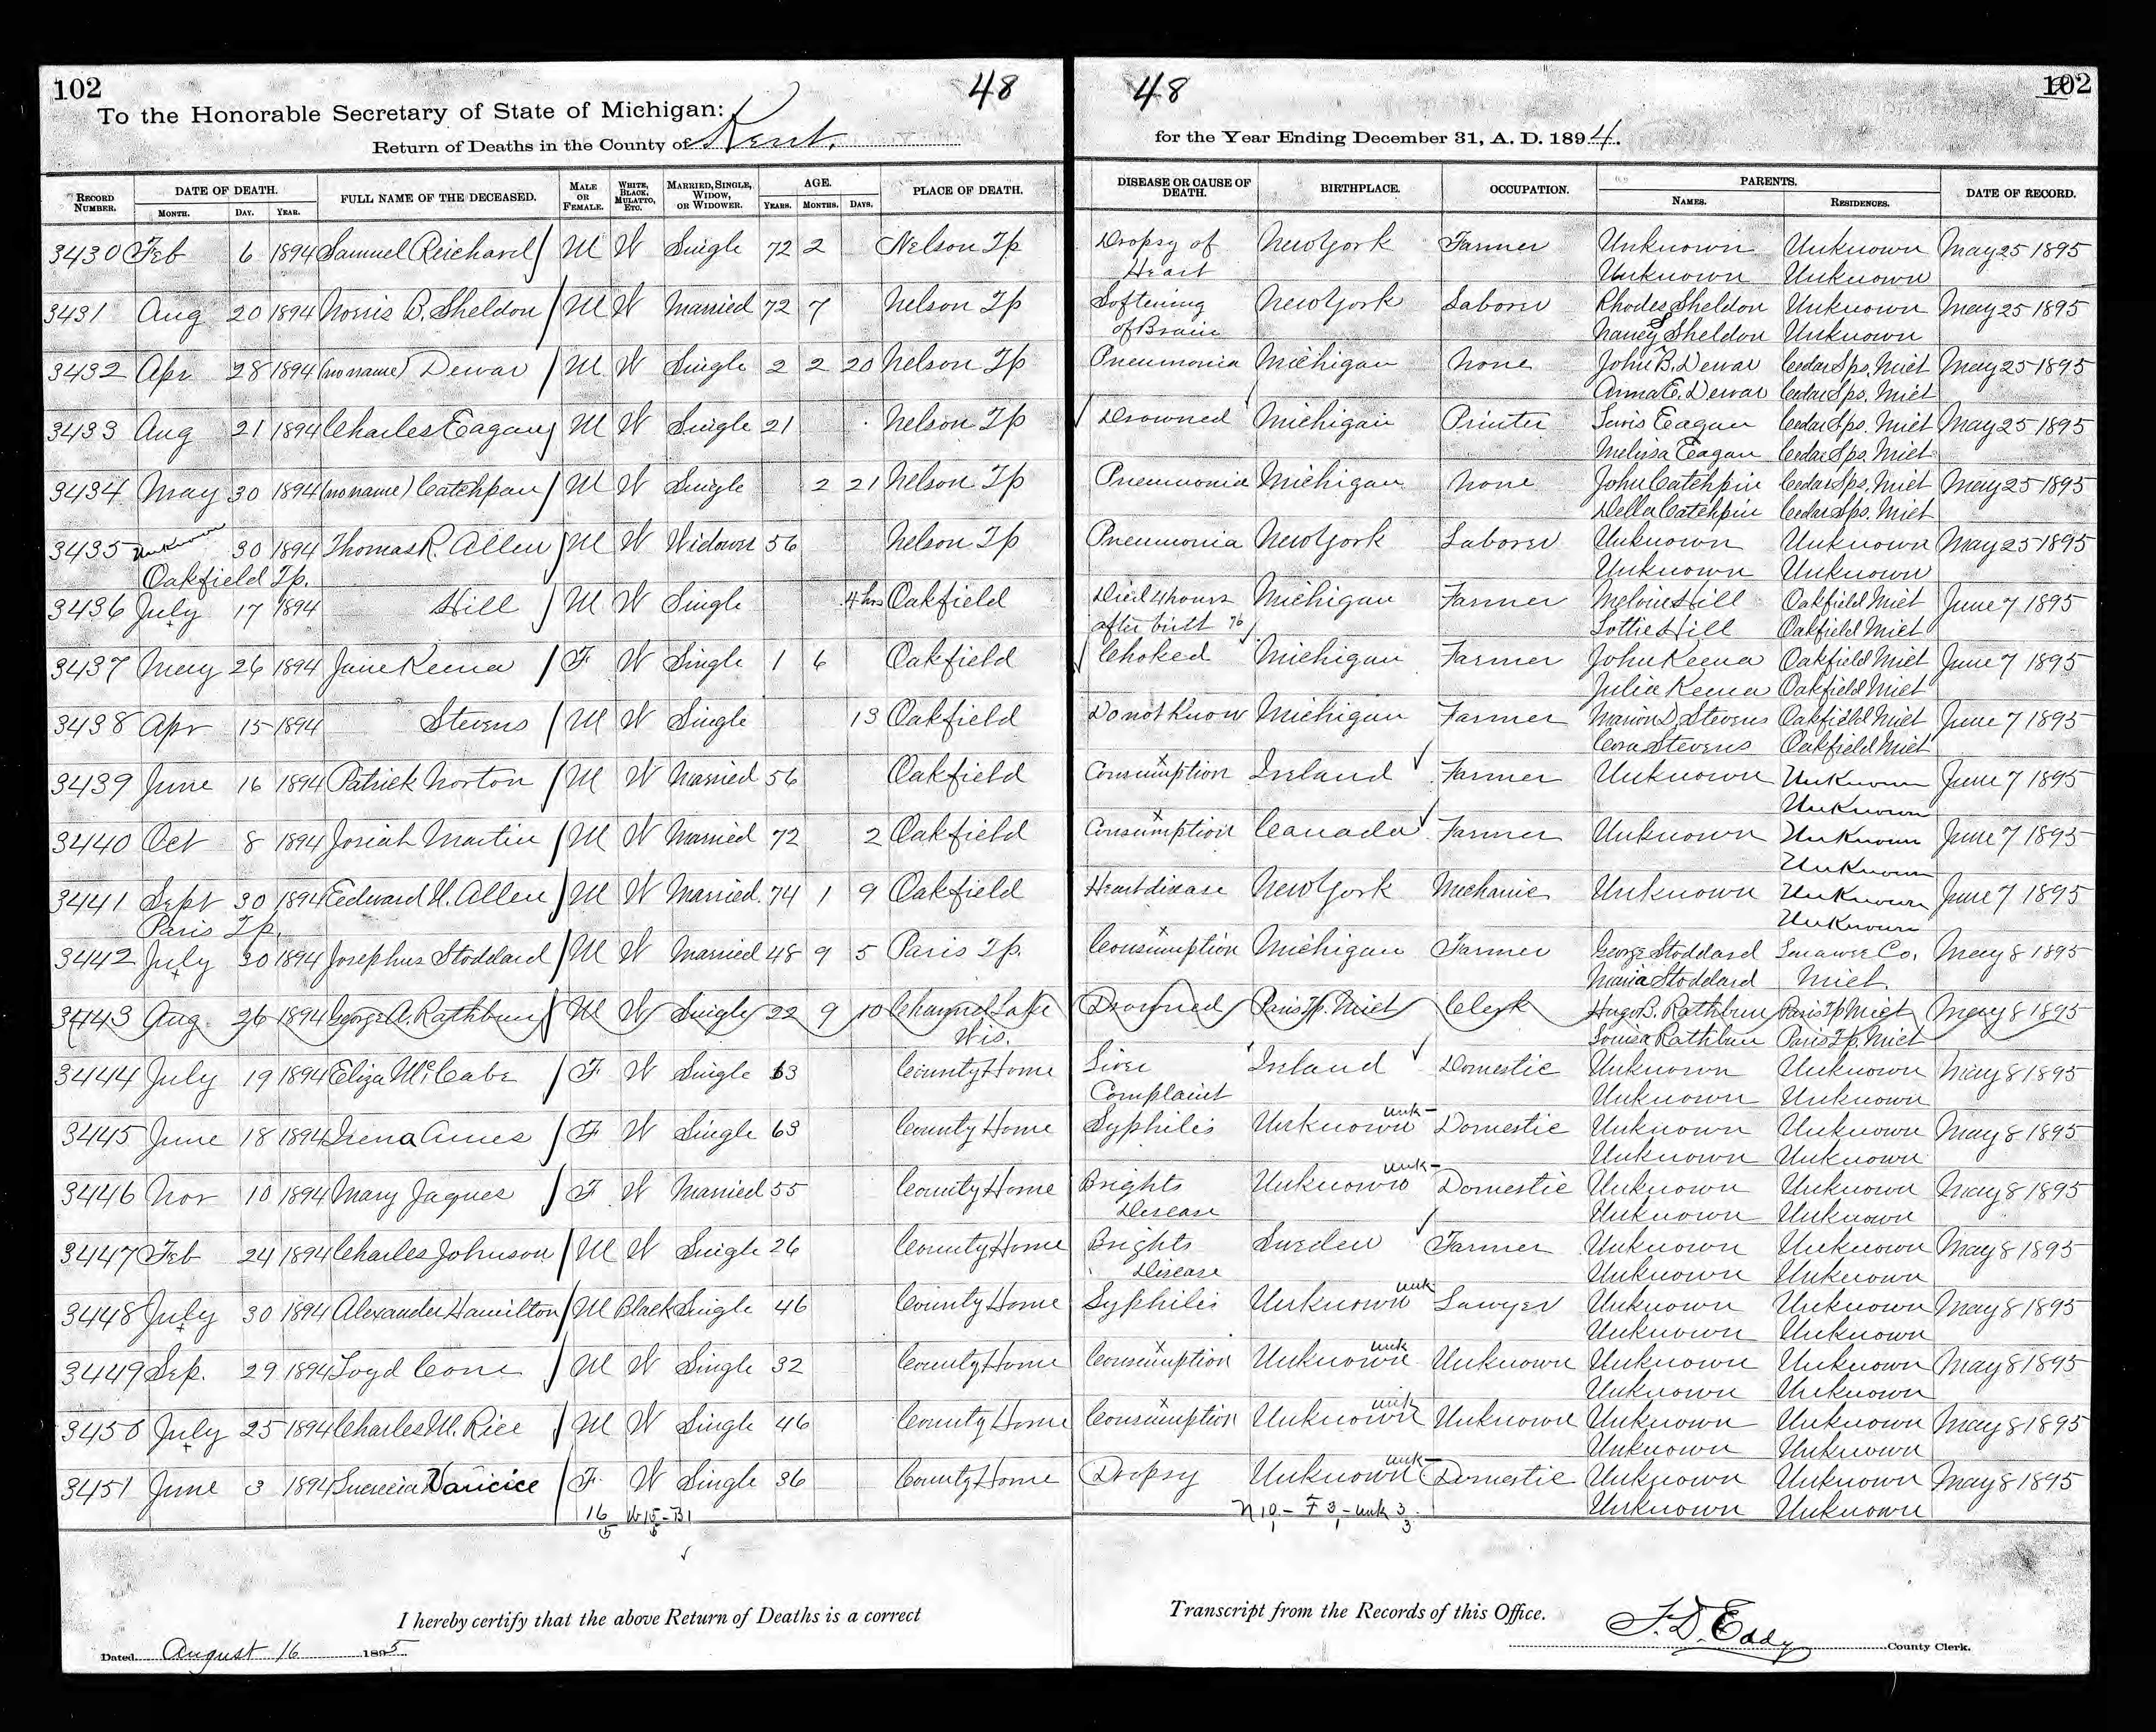 102
48
48
102
To the Honorable Secretary of State of Michigan:
Return of Deaths in the County of Kent.
for the Year Ending December 31, A. D. 1894.
RECORD NUMBER. DATE OF DEATH. MONTH. DAY. YEAR. FULL NAME OF THE DECEASED. MALE OR FEMALE. WHITE, BLACK, MULATTO, ETC. MARRIED, SINGLE, WIDOW, OR WIDOWER. AGE. YEARS. MONTHS. DAYS. PLACE OF DEATH. DISEASE OR CAUSE OF DEATH. BIRTHPLACE. OCCUPATION. PARENTS. NAMES. RESIDENCES. DATE OF RECORD.
3430 Feb 6 1894 Samuel Reichard M W Single 72 2 Nelson Tp Dropsy of New York Farmer Unknown Unknown May 25 1895
Heart Unknown Unknown
3431 Aug 20 1894 Norris B. Sheldon M W Married 72 7 Nelson Tp Softening New York Laborer Rhodes Sheldon Unknown May 25 1895
of Brain Nancy S Sheldon Unknown
3432 Apr 28 1894 (no name) Dewar M W Single 2 2 20 Nelson Tp Pneumonia Michigan None John B. Dewar Cedar Sps. Mich May 25 1895
Anna E. Dewar Cedar Sps. Mich
3433 Aug 21 1894 Charles Eagan M W Single 21 Nelson Tp Drowned Michigan Printer Lewis Eagan Cedar Sps. Mich May 25 1895
Melissa Eagan Cedar Sps. Mich
3434 May 30 1894 (no name) Catchpan M W Single 2 21 Nelson Tp Pneumonia Michigan None John Catchpin Cedar Sps. Mich May 25 1895
Della Catchpin Cedar Sps. Mich
3435 Unknown 30 1894 Thomas R. Allen M W Widower 56 Nelson Tp Pneumonia New York Laborer Unknown Unknown May 25 1895
Oakfield Tp. Unknown Unknown
3436 July 17 1894 Hill M W Single 4 hrs Oakfield Died 4 hours Michigan Farmer Melvin Hill Oakfield Mich June 7 1895
after birth 76 Lottie Hill Oakfield Mich
3437 May 26 1894 Jane Keena F W Single 1 6 Oakfield Choked Michigan Farmer John Keena Oakfield Mich June 7 1895
Julia Keena Oakfield Mich
3438 Apr 15 1894 Stevens M W Single 13 Oakfield Do not Know Michigan Farmer Marion D. Stevens Oakfield Mich June 7 1895
Cora Stevens Oakfield Mich
3439 June 16 1894 Patrick Norton M W Married 56 Oakfield Consumption Ireland Farmer Unknown Unknown June 7 1895
Unknown
3440 Oct 8 1894 Josiah Martin M W Married 72 2 Oakfield Consumption Canada Farmer Unknown Unknown June 7 1895
Unknown
3441 Sept 30 1894 Edward H. Allen M W Married 74 1 9 Oakfield Heart disease New York Mechanic Unknown Unknown June 7 1895
Paris Tp. Unknown
3442 July 30 1894 Josephus Stoddard M W Married 48 9 5 Paris Tp. Consumption Michigan Farmer George Stoddard Lenawee Co. May 8 1895
Maria Stoddard Mich.
3443 Aug. 26 1894 George A. Rathbun M W Single 22 9 10 Channel Lake Drowned Paris Tp. Mich Clerk Hugo B. Rathbun Paris Tp Mich May 8 1895
Wis. Louisa Rathbun Paris Tp. Mich
3444 July 19 1894 Eliza McCabe F W Single 63 County Home Liver Ireland Domestic Unknown Unknown May 8 1895
Complaint Unknown Unknown
3445 June 18 1894 Irena Ames F W Single 63 County Home Syphilis Unknown unk Domestic Unknown Unknown May 8 1895
Unknown Unknown
3446 Nov 10 1894 Mary Jaques F W Married 55 County Home Brights Unknown unk Domestic Unknown Unknown May 8 1895
Disease Unknown Unknown
3447 Feb 24 1894 Charles Johnson M W Single 26 County Home Brights Sweden Farmer Unknown Unknown May 8 1895
Disease Unknown Unknown
3448 July 30 1894 Alexander Hamilton M Black Single 46 County Home Syphilis Unknown unk Lawyer Unknown Unknown May 8 1895
Unknown Unknown
3449 Sep. 29 1894 Loyd Cone M W Single 32 County Home Consumption Unknown unk Unknown Unknown Unknown May 8 1895
Unknown Unknown
3450 July 25 1894 Charles M. Rice M W Single 46 County Home Consumption Unknown unk Unknown Unknown Unknown May 8 1895
Unknown Unknown
3451 June 3 1894 Lucrecia F W Single 36 County Home Dropsy Unknown unk Domestic Unknown Unknown May 8 1895
Unknown Unknown
16 W 15 - B1 N 10 - F 3 - unk 3
5 5 1 1 3
I hereby certify that the above Return of Deaths is a correct Transcript from the Records of this Office.
Dated August 16 1895 F. D. Eddy County Clerk.